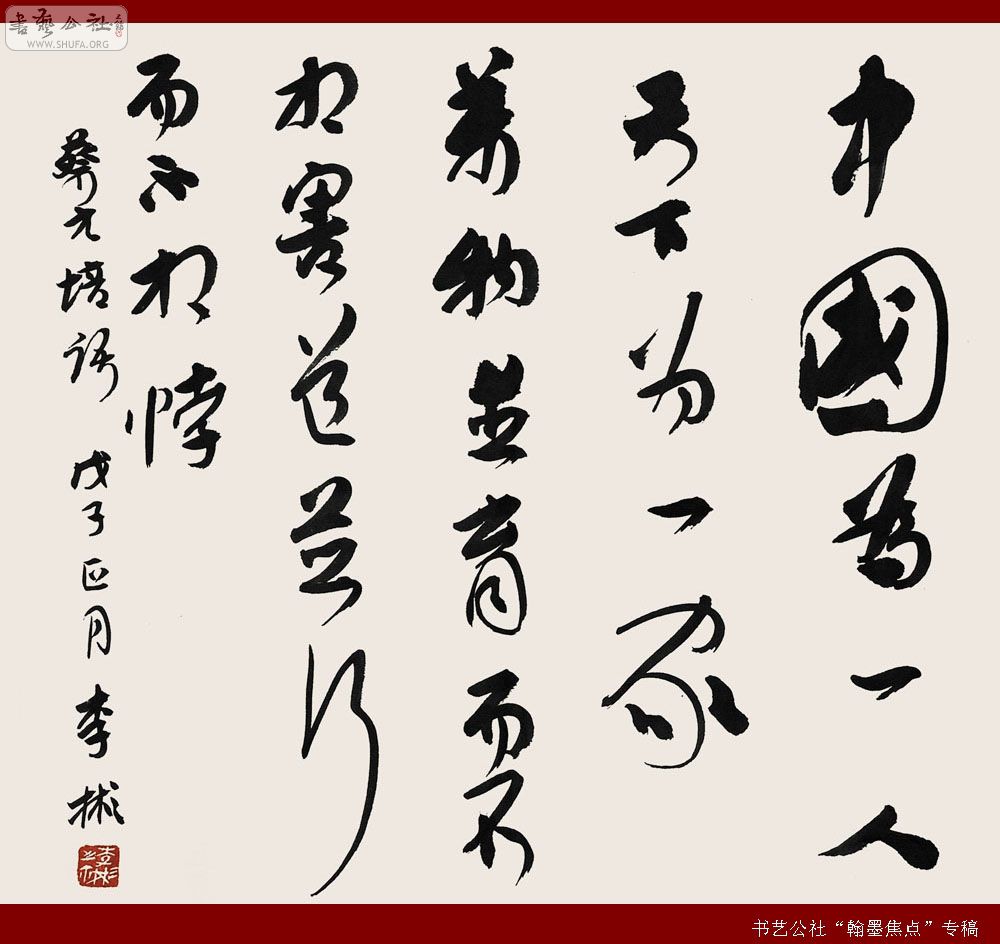 中國為一人
天下为一家
萬物並育而不
相害道並行
而不相悖
蔡元培語 戊子正月 李彬
李彬之印
書藝公社
WWW.SHUFA.ORG
书艺公社“翰墨焦点”专稿